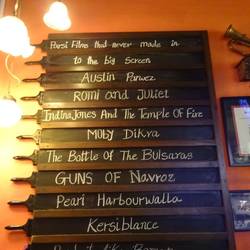 Parsi Films that never made in
to the big Screen
Austin Parwez
Romi and Juliet
Indina Jones And The Temple Of Fire
Moby Dikra
The Battle Of The Bulsaras
GUNS OF Navroz
Pearl Harbourwalla
Kersiblance